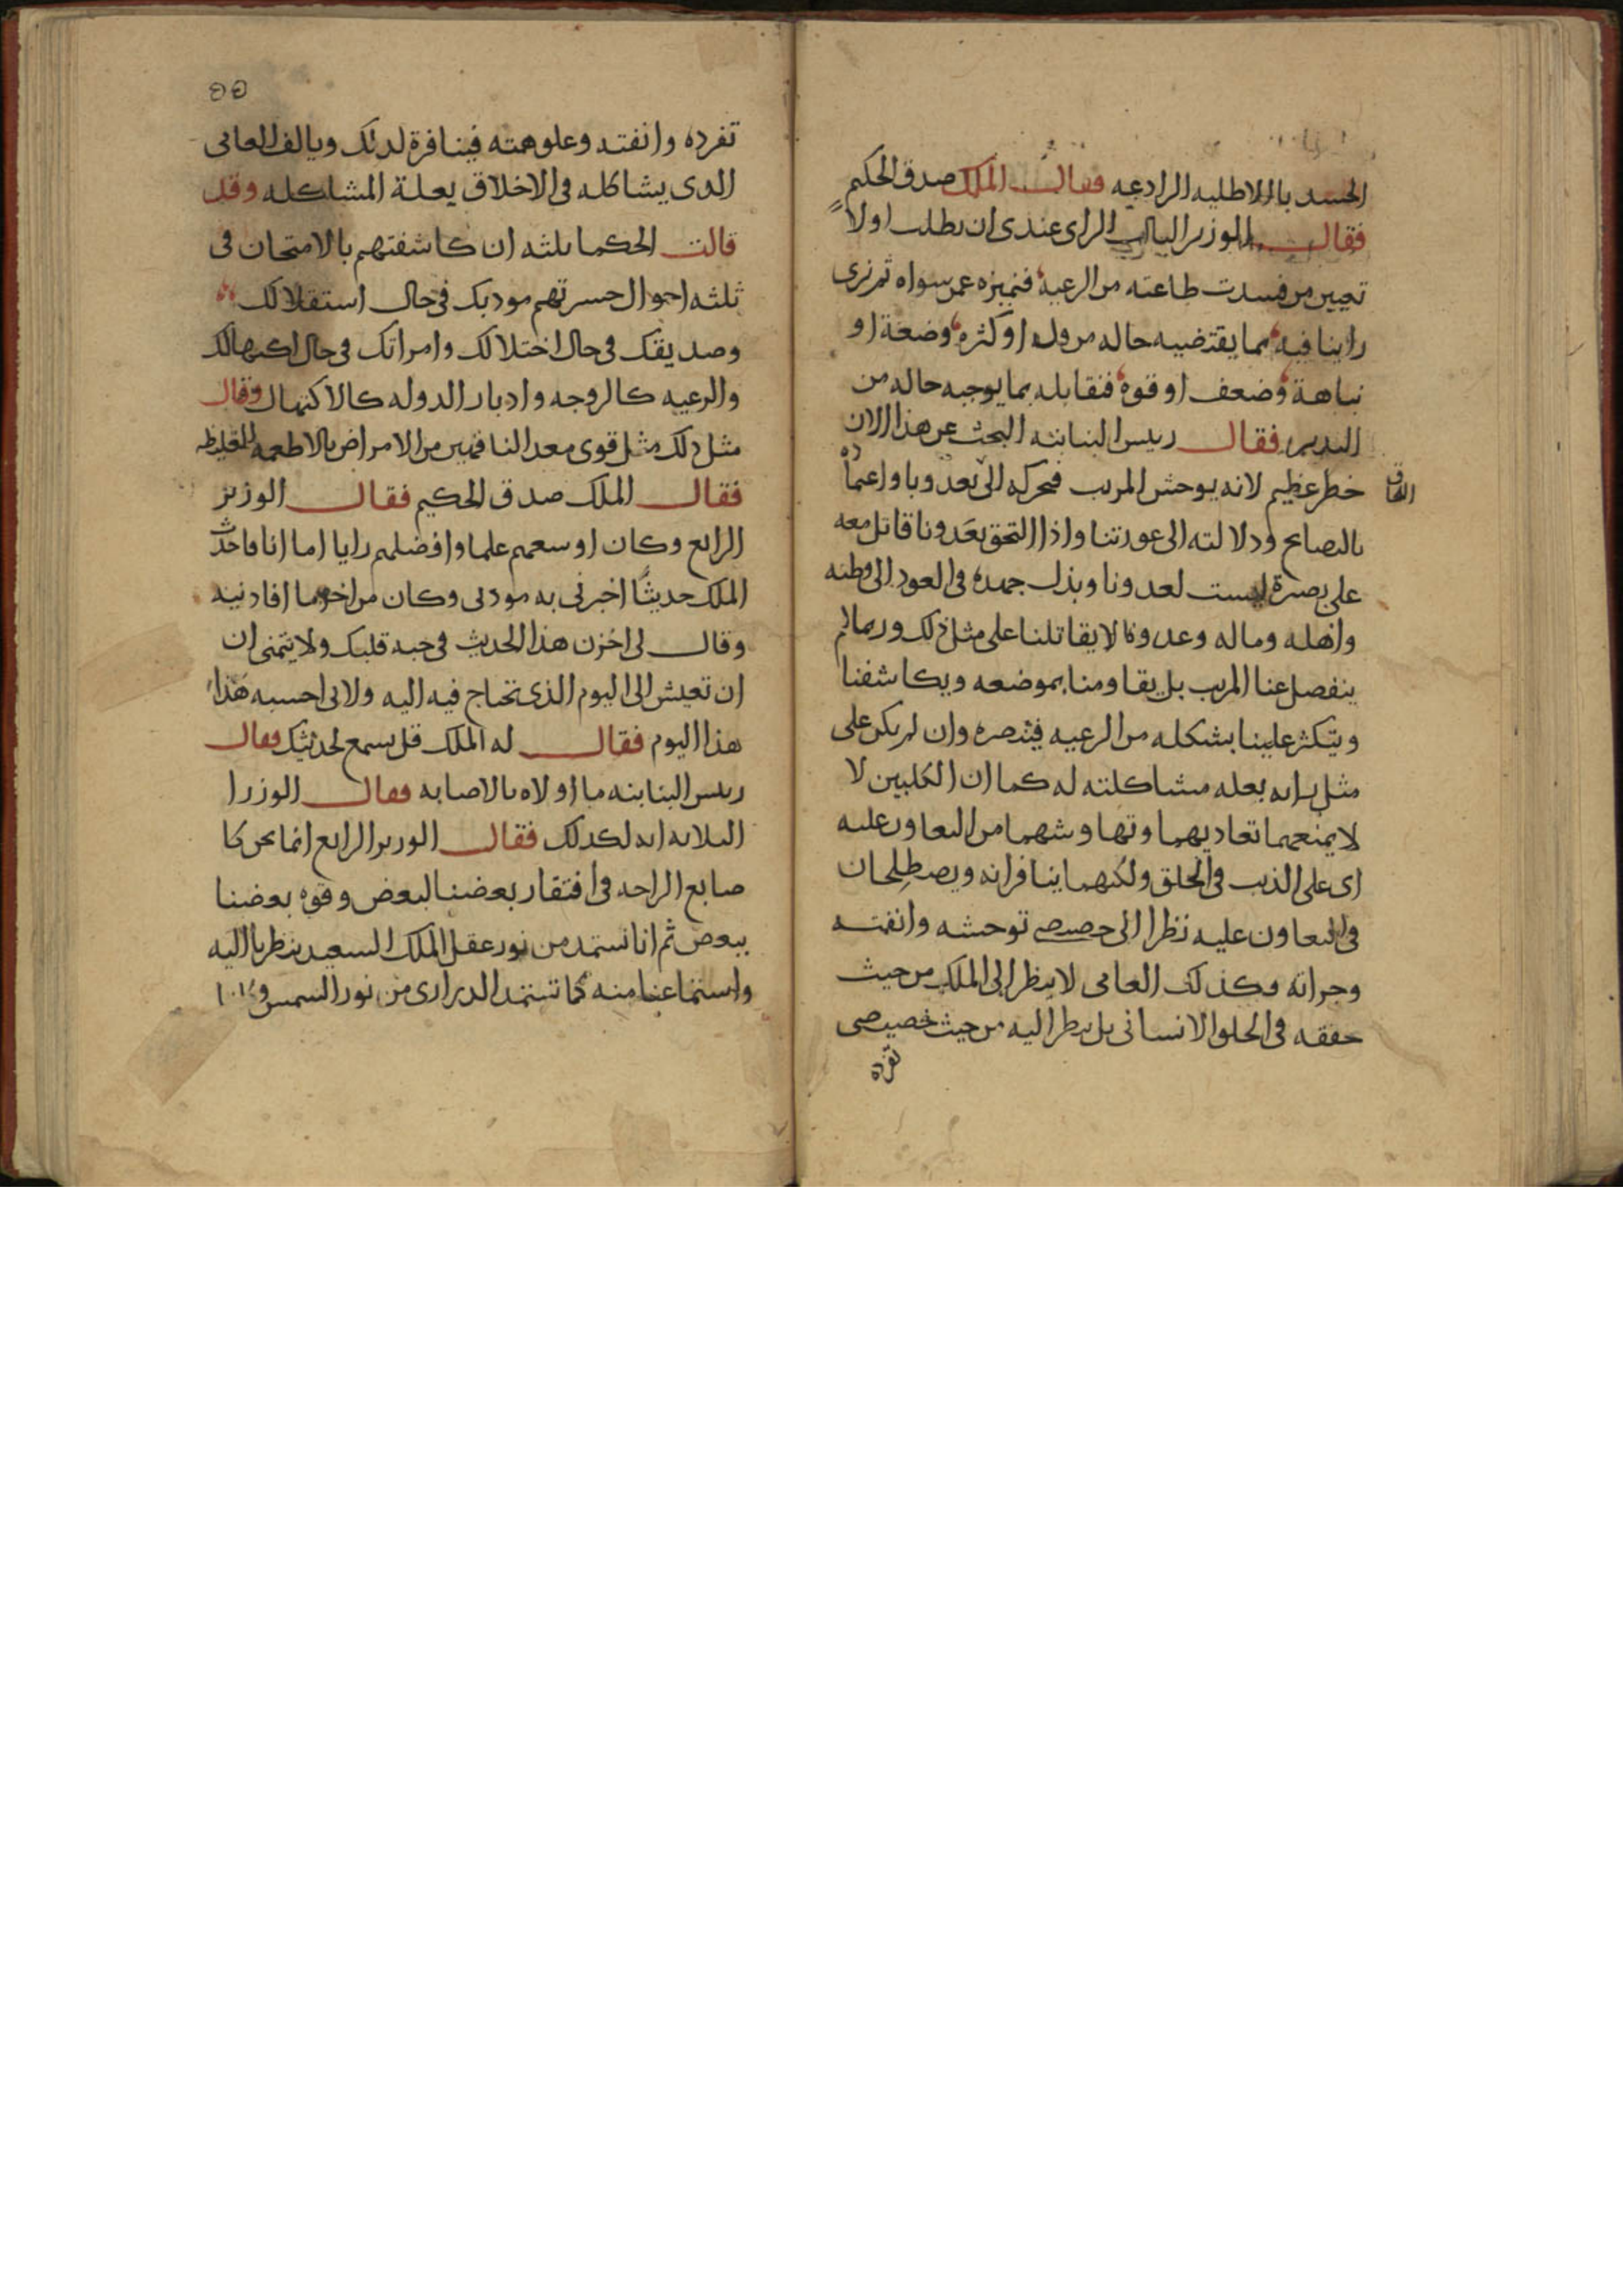 الجسد بالاطليه الرادعه فقال الملك صدق الحكيم
فقال الوزير الثالث الراى عندى ان نطلب اولا
تعيين من فسدت طاعته من الرعية فنميزه عمن سواه ثم نرى
راينا فيه بما يقتضيه حاله من قله او كثره وضعة او
نباهة وضعف او قوة فنقابله بما يوجبه حاله من
التدبير فقال رييس البنابته البحث عن هذا الان
خطر عظيم لانه يوحش المريب فيحركه الى بعد وبا واعماده
التحاق
بالنصايح ودلالته الى عورتنا واذا التحق بعدونا قاتل معه
على بصيرة ليست لعدونا وبذل جهده فى العود الى وطنه
واهله وماله وعدونا لا يقاتلنا على مثل ذلك وربما لم
ينفصل عنا المريب بل يقاومنا بموضعه ويكاشفنا
ويتكثر علينا بشكله من الرعيه فينصره وان لم يكن على
مثل رايه بعله مشاكلته له كما ان الكلبين لا
لا يمنعهما تعاديهما وتهاوشهما من التعاون عليه
اى على الذيب فى الخلق ولكنهما ينافرانه ويصطلحان
فى التعاون عليه نظرا الى خصيصى توحشه وانفته
وجراته وكذلك العامى لا ينظر الى الملك من حيث
حققه فى الخلق الانسانى بل ينظر اليه من حيث خصيصى
تفرده
٥٥
تفرده وانفته وعلو همته فينافرة لذلك ويالف العامى
الذى يشاكله فى الاخلاق بعلة المشاكله وقد
قالت الحكما ثلثه ان كاشفتهم بالامتحان فى
ثلثه احوال خسرتهم مودبك فى حال استقلالك
وصديقك فى حال اختلالك وامراتك فى حال اكتهالك
والرعيه كالزوجه وادبار الدوله كالاكتهال وقال
مثل ذلك مثل قوى معد الناقهين من الامراض بالاطعمه الغليظه
فقال الملك صدق الحكيم فقال الوزير
الرابع وكان اوسعهم علما وافضلهم رايا اما انا فاحدث
الملك حديثا اخبرنى به مودبى وكان من اخر ما افادنيه
وقال لى اخزن هذا الحديث فى حبة قلبك ولا تتمنى ان
ان تعيش الى اليوم الذى تحتاج فيه اليه ولانى احسبه هذا
هذا اليوم فقال له الملك قل نسمع لحديثك فقال
رييس البنابته ما اولاه بالاصابه فقال الوزرا
الثلاثه انه لكذلك فقال الوزير الرابع انما نحن كا
صابع الراحه فى افتقار بعضنا لبعض وقوه بعضنا
ببعض ثم انا نستمد من نور عقل الملك السعيد بنظرنا اليه
واستماعنا منه كما تستمد الدرارى من نور الشمس